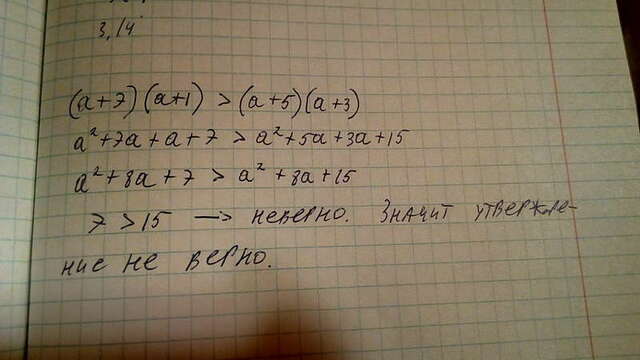 3,14
(a+7)(a+1) > (a+5)(a+3)
a²+7a+a+7 > a²+5a+3a+15
a²+8a+7 > a²+8a+15
7 > 15 —> неверно. Значит утвержде-
ние не верно.